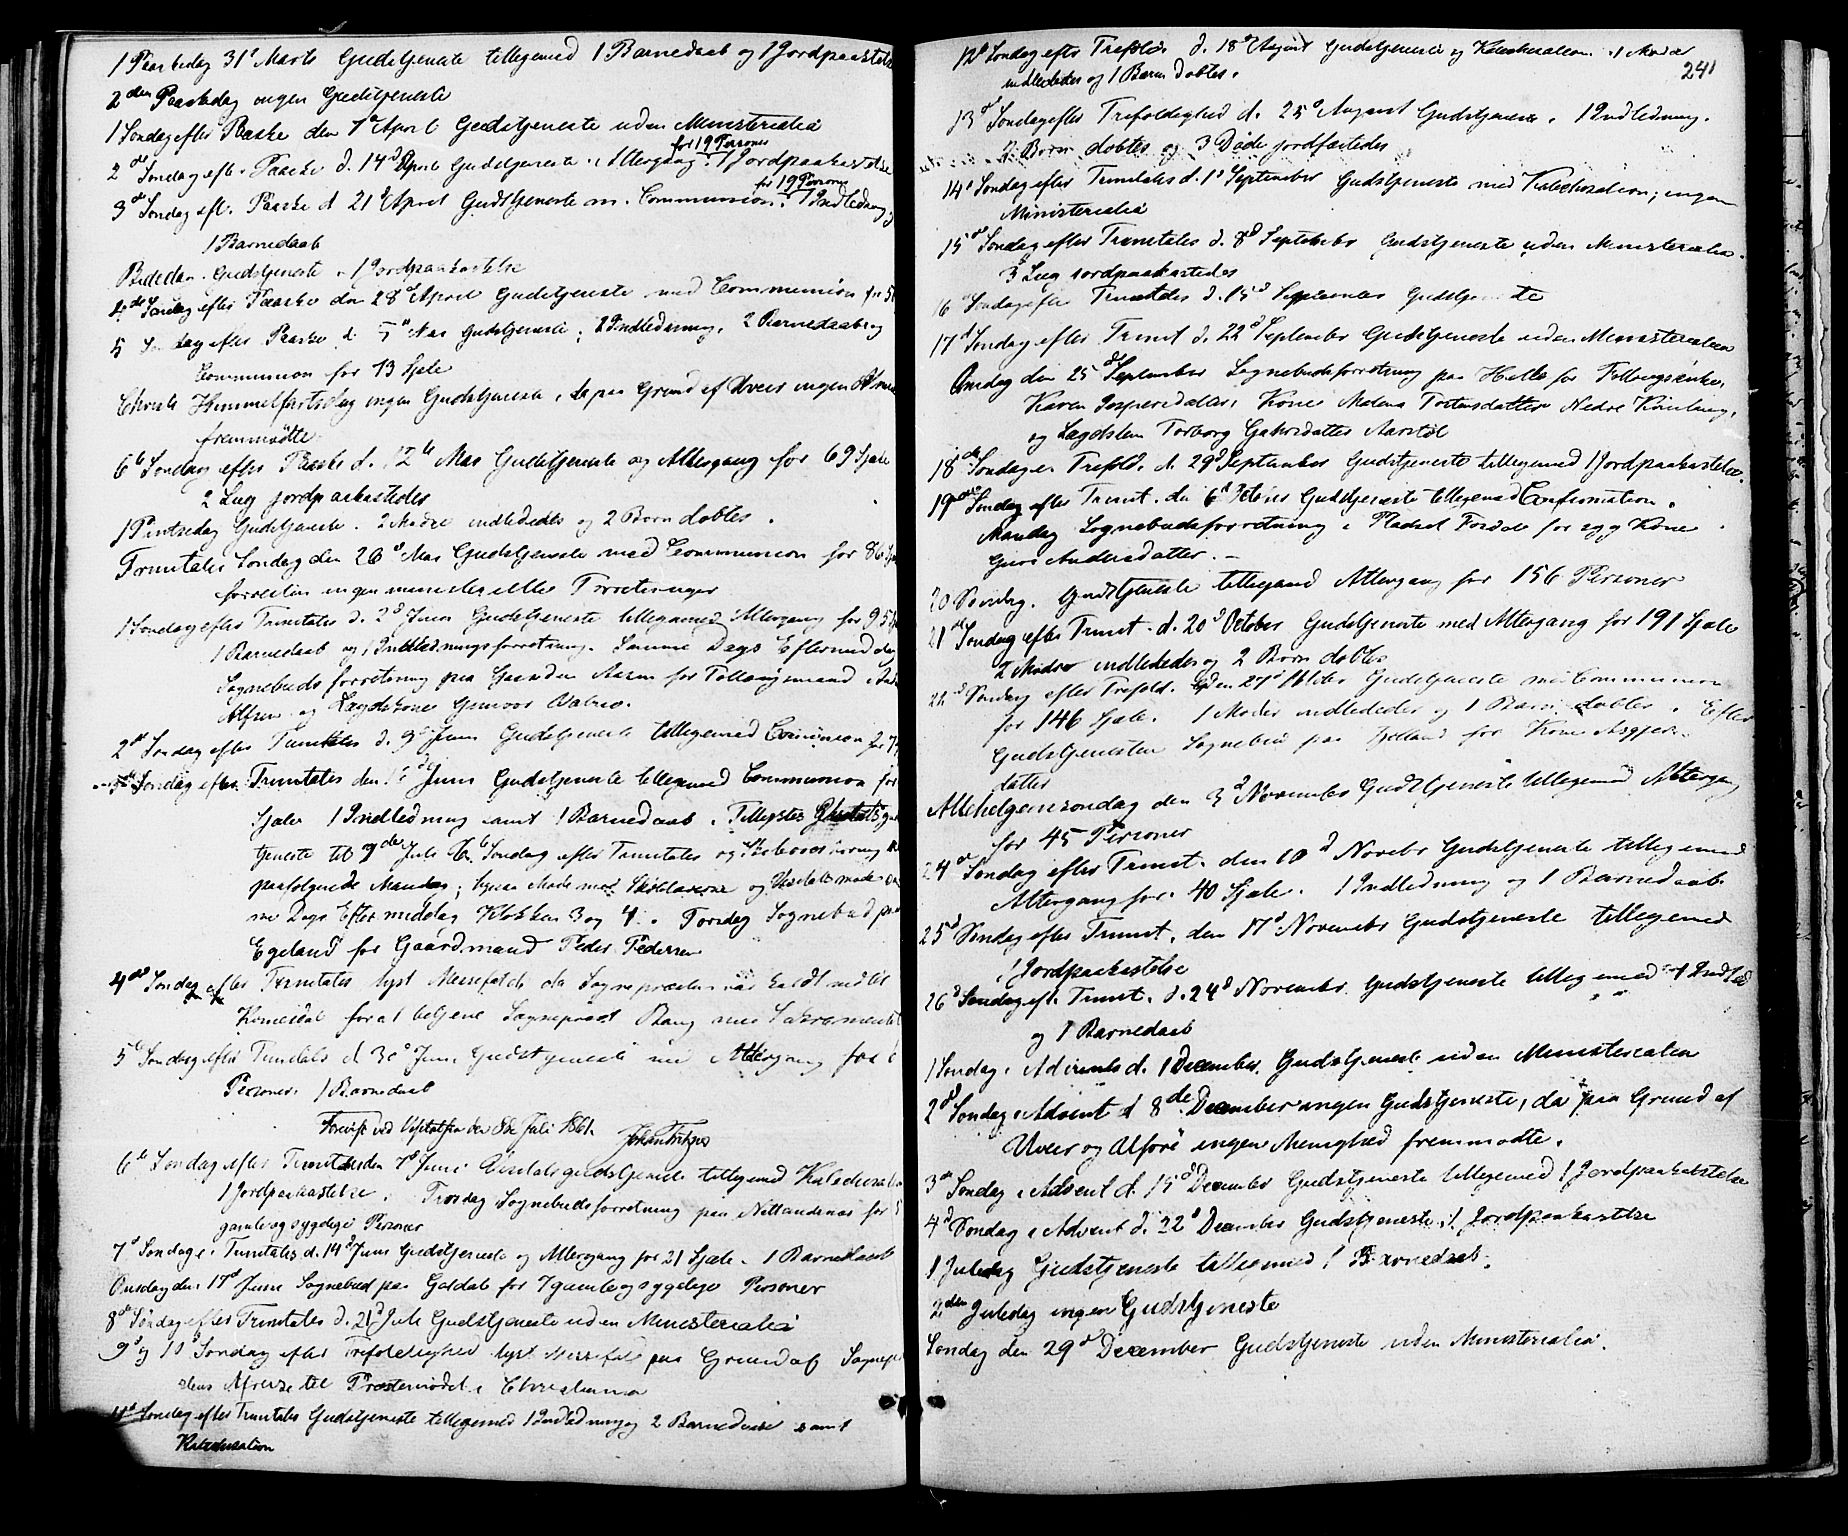 1 Paaskedag 31te Marts Gudstjeneste tilligemed 1 Barnedaab og 1 Jordpaakastelse
2den Paaskedag ingen Gudstjeneste
1 Søndag efter Paaske den 7de April Gudstjeneste uden Ministerialia
for 19 Personer
2de Søndag eft. Paaske d. 14de April Gudstjeneste. Altergang. 1 Jordpaakastelse
for 19 Personer
3de Søndag eft. Paaske d 21de April Gudstjeneste m. Communion. 1 Indledning,
1 Barnedaab
Bededag. Gudstjeneste. 1 Jordpaakastelse
4de Søndag efter Paaske den 28de April Gudstjeneste med Communion for
5 Søndag efter Paaske d. 5te Mai Gudstjeneste; 2 Indledning, 2 Barnedaab og
Communion for 13 Sjæle
Christi Himmelfartsdag ingen Gudstjeneste, da paa Grund af Uveir ingen Almue
fremmødte.
6te Søndag efter Paaske d. 12te Mai Gudstjeneste og Altergang for 69 Sjæle
2 Liig jordpaakastedes
1 Pintsedag Gudstjeneste. 2 Mødre indlededes og 2 Børn døbtes.
Trinitatis Søndag den 26de Mai Gudstjeneste med Communion for 86 Sjæle
forresten ingen ministerielle Forretninger
1 Søndag efter Trinitatis d. 2d Juni Gudstjeneste tilligemed Altergang for 95
1 Barnedaab og 1 Indledningsforretning. Samme Dags Eftermiddag
Sognebudsforretning paa Gaarden Aarsn for Føllaugsmand
Alfsen og Lægdskone Gunvor
2de Søndag efter Trinitatis d. 9d Juni Gudstjeneste tilligemed Communion for
3de Søndag efter Trinitatis den 16de Juni Gudstjeneste tilligemed Communion for
Sjæle 1 Indledning samt 1 Barnedaab. Tillystes Visitatsguds-
tjeneste til 7de Juli 6te Søndag efter Trinitatis og
paafølgende Mandag; ligesaa Møde med Skolelærerne og
me Dags Eftermiddag Klokken 3 og 4. Torsdag Sognebud paa
Egeland for Gaardmand Peder Pedersen
4de Søndag efter Trinitatis lyst Messefald da Sognepræsten var kaldt ned til
for at betjene Sognepræst Bang med Sakramentet
5te Søndag efter Trinitatis d 30d Juni Gudstjeneste med Altergang for 6
Personer. 1 Barnedaab
Forevist ved Visitatsen den 8de Juli 1861. Johan Fritzner
6te Søndag efter Trinitatis den 7d Juni Visitatsgudstjeneste tilligemed Katechisation
1 Jordpaakastelse. Torsdag Sognebudsforretning paa for
gamle og sygelige Personer
7d Søndag e. Trinitatis d. 14d Juni Gudstjeneste og Altergang for 21 Sjæle. 1 Barnedaab
Onsdag den 17d Juni Sognebud paa Galdal for 7 gamle og sygelige Personer
8de Søndag efter Trinitatis d. 21d Juli Gudstjeneste uden Ministerialia
9d og 10d Søndag efter Trefoldighed lyst Messefald paa Grund af Sognepræ-
stens Afreise til Præstemødet i Christiania
11te Søndag efter Trinitatis Gudstjeneste tilligemed 1 Indledning og 2 Barnedaab samt
Katechisation
241
12te Søndag efter Trefold. d. 18de August Gudstjeneste og Katechisation. 1 Moder
indlededes og 1 Barn døbtes.
13de Søndag efter Trefoldighed d. 25d August Gudstjeneste. 1 Indledning.
2 Børn døbtes og 3 Døde jordfæstedes
14de Søndag efter Trinitatis d. 1d September Gudstjeneste med Katechisation; ingen
Ministerialia
15de Søndag efter Trinitatis d. 8d September Gudstjeneste uden Ministerialia.
3 Liig jordpaakastedes
16 Søndag efter Trinitatis d. 15d September Gudstjeneste
17d Søndag efter Trinit d. 22d September Gudstjeneste uden Ministerialia
Onsdag den 25d September Sognebudsforretning paa Helle for Føllaugsenke
Karen Jespersdatter, Kone Malena Tostensdatter Nedre
og Lægdslem Torborg
18de Søndag e. Trefold. d. 29d September Gudstjeneste tilligemed 1 Jordpaakastelse.
19de Søndag efter Trinit. den 6d October Gudstjeneste tilligemed Confirmation.
Mandag Sognebudsforretning i for syg Kone
Guri Andersdatter. –
20 Søndag. Gudstjeneste tilligemed Altergang for 156 Personer
21de Søndag efter Trinit. d. 20d October Gudstjeneste med Altergang for 191 Sjæle
2 Mødre indlededes og 2 Børn døbtes
22d Søndag efter Trefold. den 27d October Gudstjeneste med Communion
for 146 Sjæle. 1 Moder indlededes og 1 Barn døbtes. Efter
Gudstjenesten Sognebud paa for Kone
datter
Allehelgensøndag den 3d November Gudstjeneste tilligemed Altergang
for 45 Personer
24de Søndag efter Trinit. den 10d Novbr Gudstjeneste tilligemed
Altergang for 40 Sjæle. 1 Indledning og 1 Barnedaab
25d Søndag efter Trinit. den 17d Novembr Gudstjeneste tilligemed
1 Jordpaakastelse
26d Søndag eft. Trinit. d. 24d Novembr. Gudstjeneste tilligemed 1 Indled
og 1 Barnedaab
1 Søndag i Advents d. 1 December. Gudstjeneste uden Ministerialia
2d Søndag i Advent d 8de December ingen Gudstjeneste, da paa Grund af
Uveir og Uføre ingen Menighed fremmødte.
3de Søndag i Advent d. 15d December Gudstjeneste tilligemed 1 Jordpaakastelse
4d Søndag i Advent d. 22d December Gudstjeneste. 1 Jordpaakastelse
1 Juledag Gudstjeneste tilligemed 1 Barnedaab.
2den Juledag ingen Gudstjeneste
Søndag den 29de December Gudstjeneste uden Ministerialia.